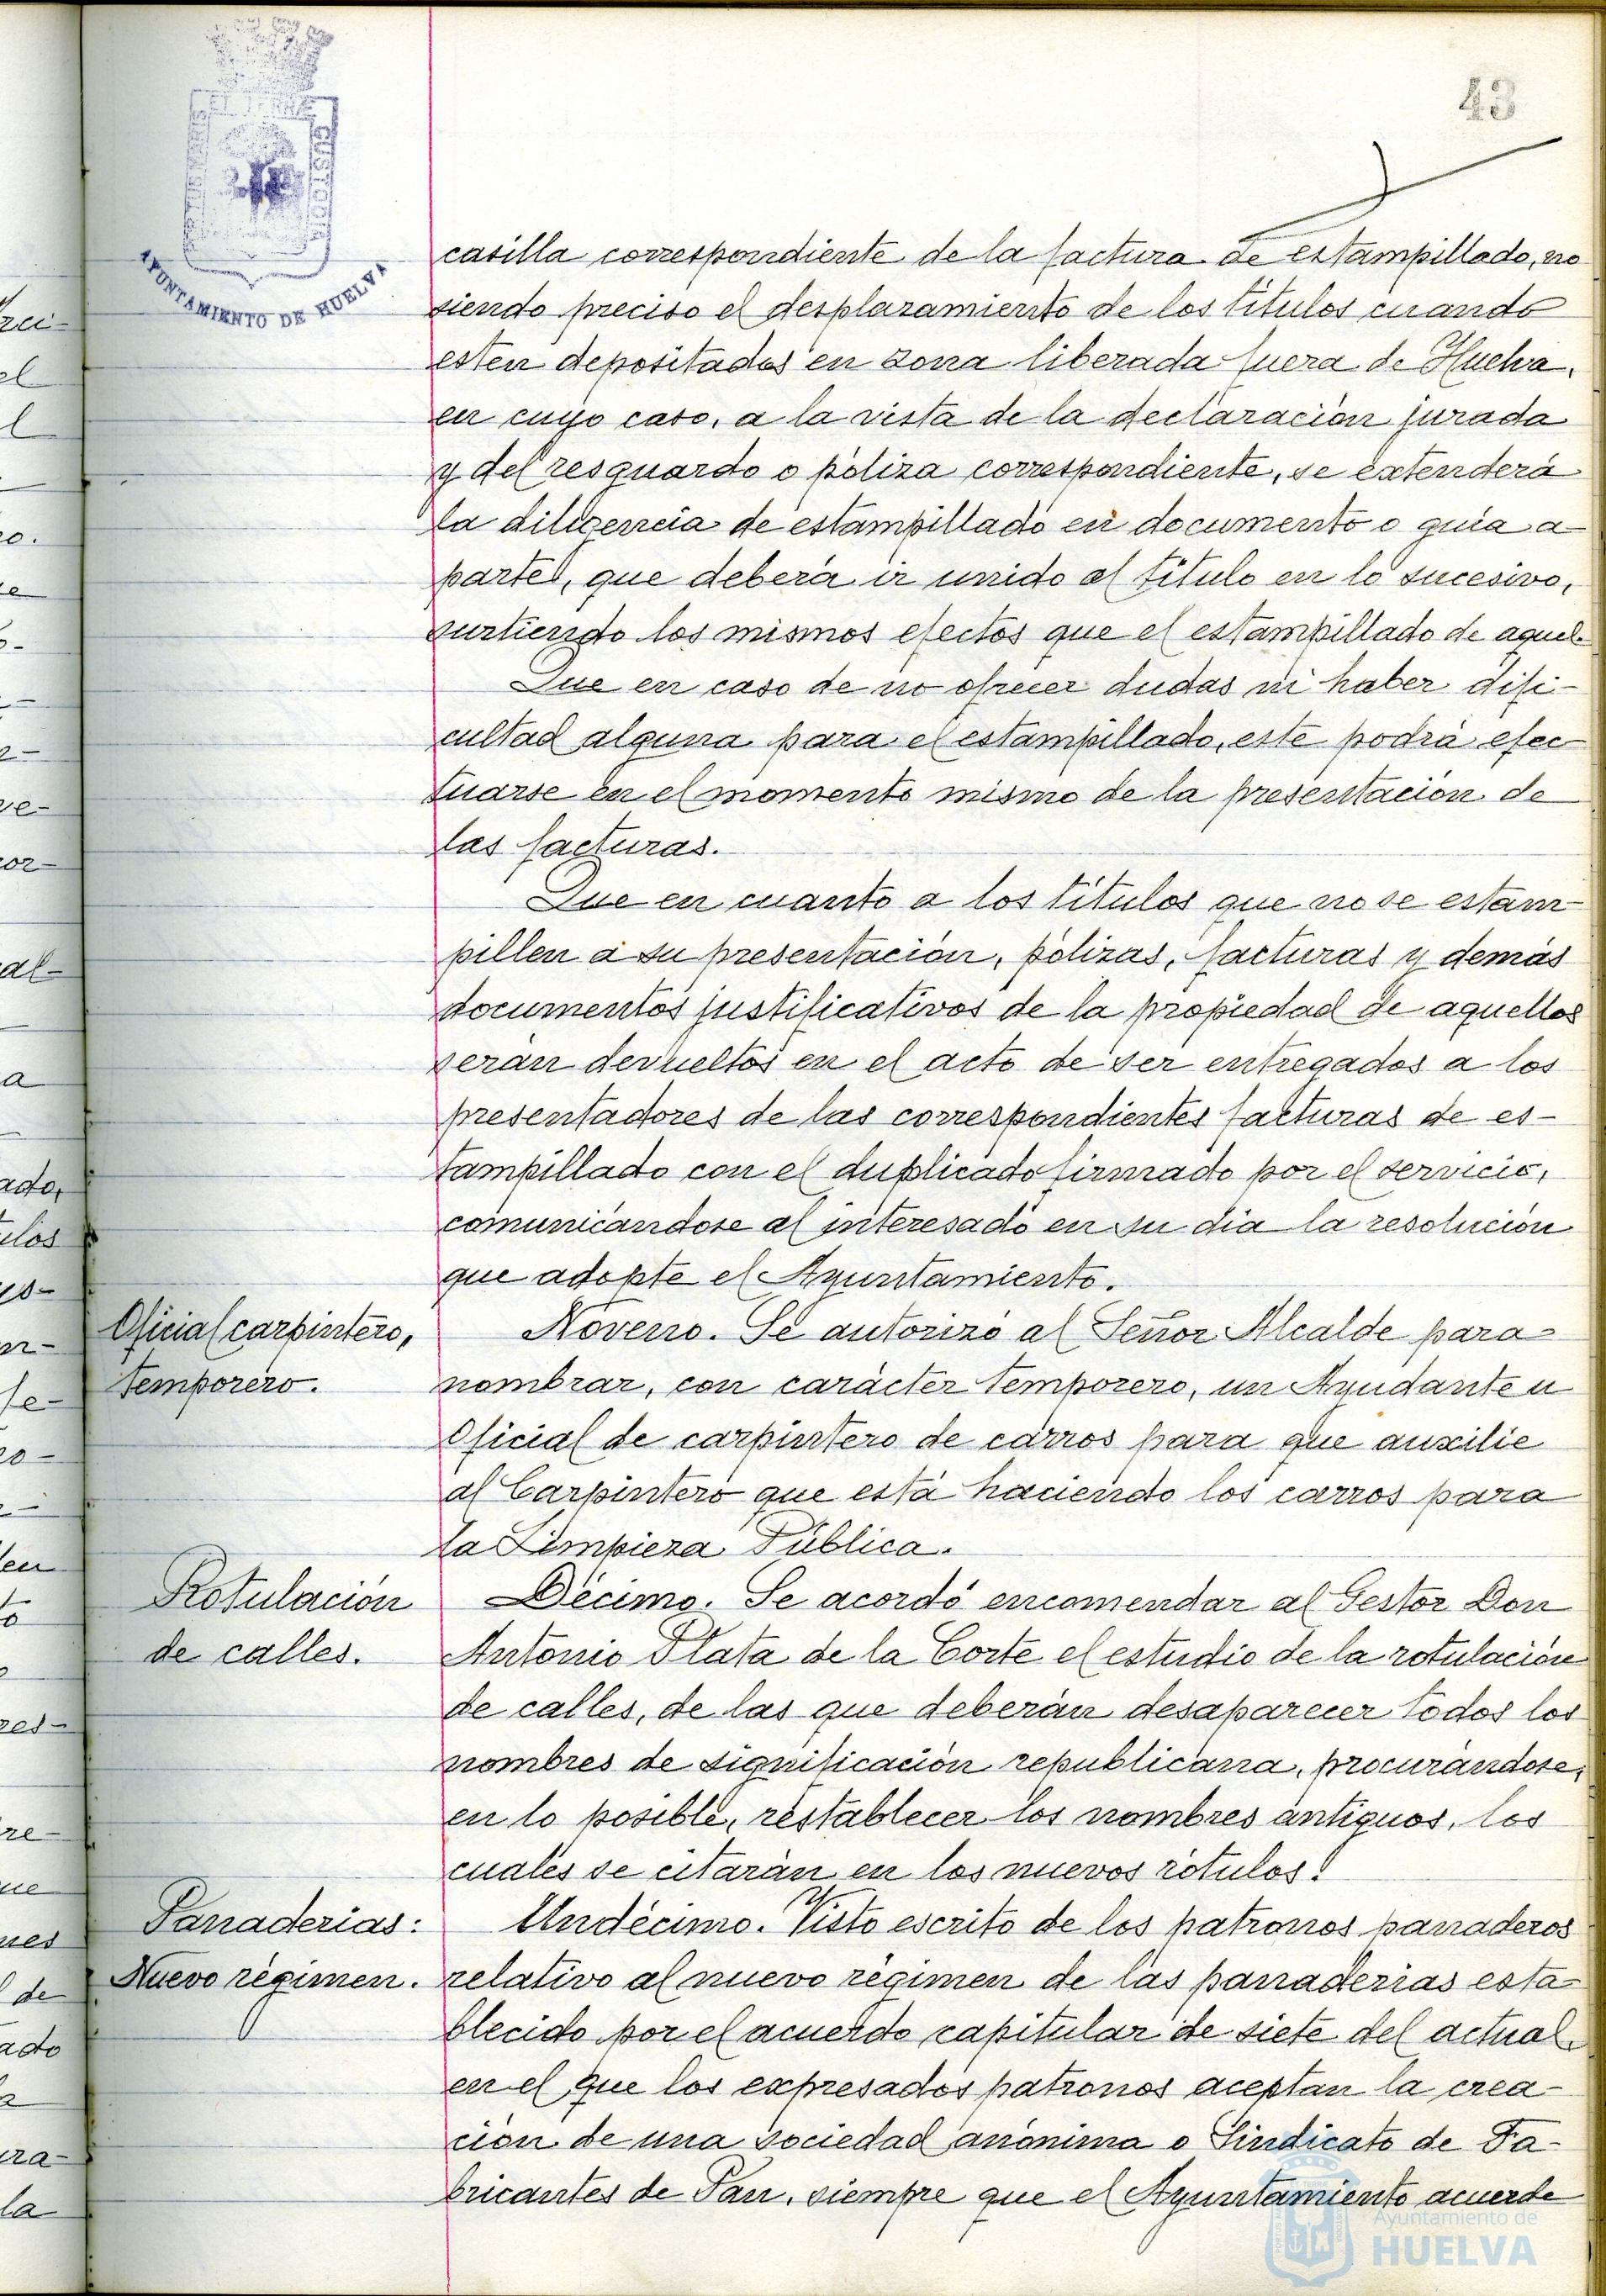 43
PORTUS MARIS ET TERRAE CUSTODIA
AYUNTAMIENTO DE HUELVA
casilla correspondiente de la factura de estampillado, no
siendo preciso el desplazamiento de los títulos cuando
esten depositados en zona liberada fuera de Huelva,
en cuyo caso, a la vista de la declaración jurada
y del resguardo o póliza correspondiente, se extenderá
la diligencia de estampillado en documento o guía a-
parte, que deberá ir unido al título en lo sucesivo,
surtiendo los mismos efectos que el estampillado de aquel.
Que en caso de no ofrecer dudas ni haber difi-
cultad alguna para el estampillado, este podrá efec-
tuarse en el momento mismo de la presentación de
las facturas.
Que en cuanto a los títulos que no se estam-
pillen a su presentación, pólizas, facturas y demás
documentos justificativos de la propiedad de aquellos
serán devueltos en el acto de ser entregados a los
presentadores de las correspondientes facturas de es-
tampillado con el duplicado firmado por el servicio,
comunicándose al interesado en su día la resolución
que adopte el Ayuntamiento.
Oficial carpintero,
temporero.
Noveno. Se autorizó al Señor Alcalde para
nombrar, con carácter temporero, un Ayudante u
Oficial de carpintero de carros para que auxilie
al Carpintero que está haciendo los carros para
la Limpieza Pública.
Rotulación
de calles.
Décimo. Se acordó encomendar al Gestor Don
Antonio Plata de la Corte el estudio de la rotulación
de calles, de las que deberán desaparecer todos los
nombres de significación republicana, procurándose,
en lo posible, restablecer los nombres antiguos, los
cuales se citarán en los nuevos rótulos.
Panaderías:
Nuevo régimen.
Undécimo. Visto escrito de los patronos panaderos
relativo al nuevo régimen de las panaderías esta-
blecido por el acuerdo capitular de siete del actual,
en el que los expresados patronos aceptan la crea-
ción de una sociedad anónima o Sindicato de Fa-
bricantes de Pan, siempre que el Ayuntamiento acuerde
Ayuntamiento de
HUELVA